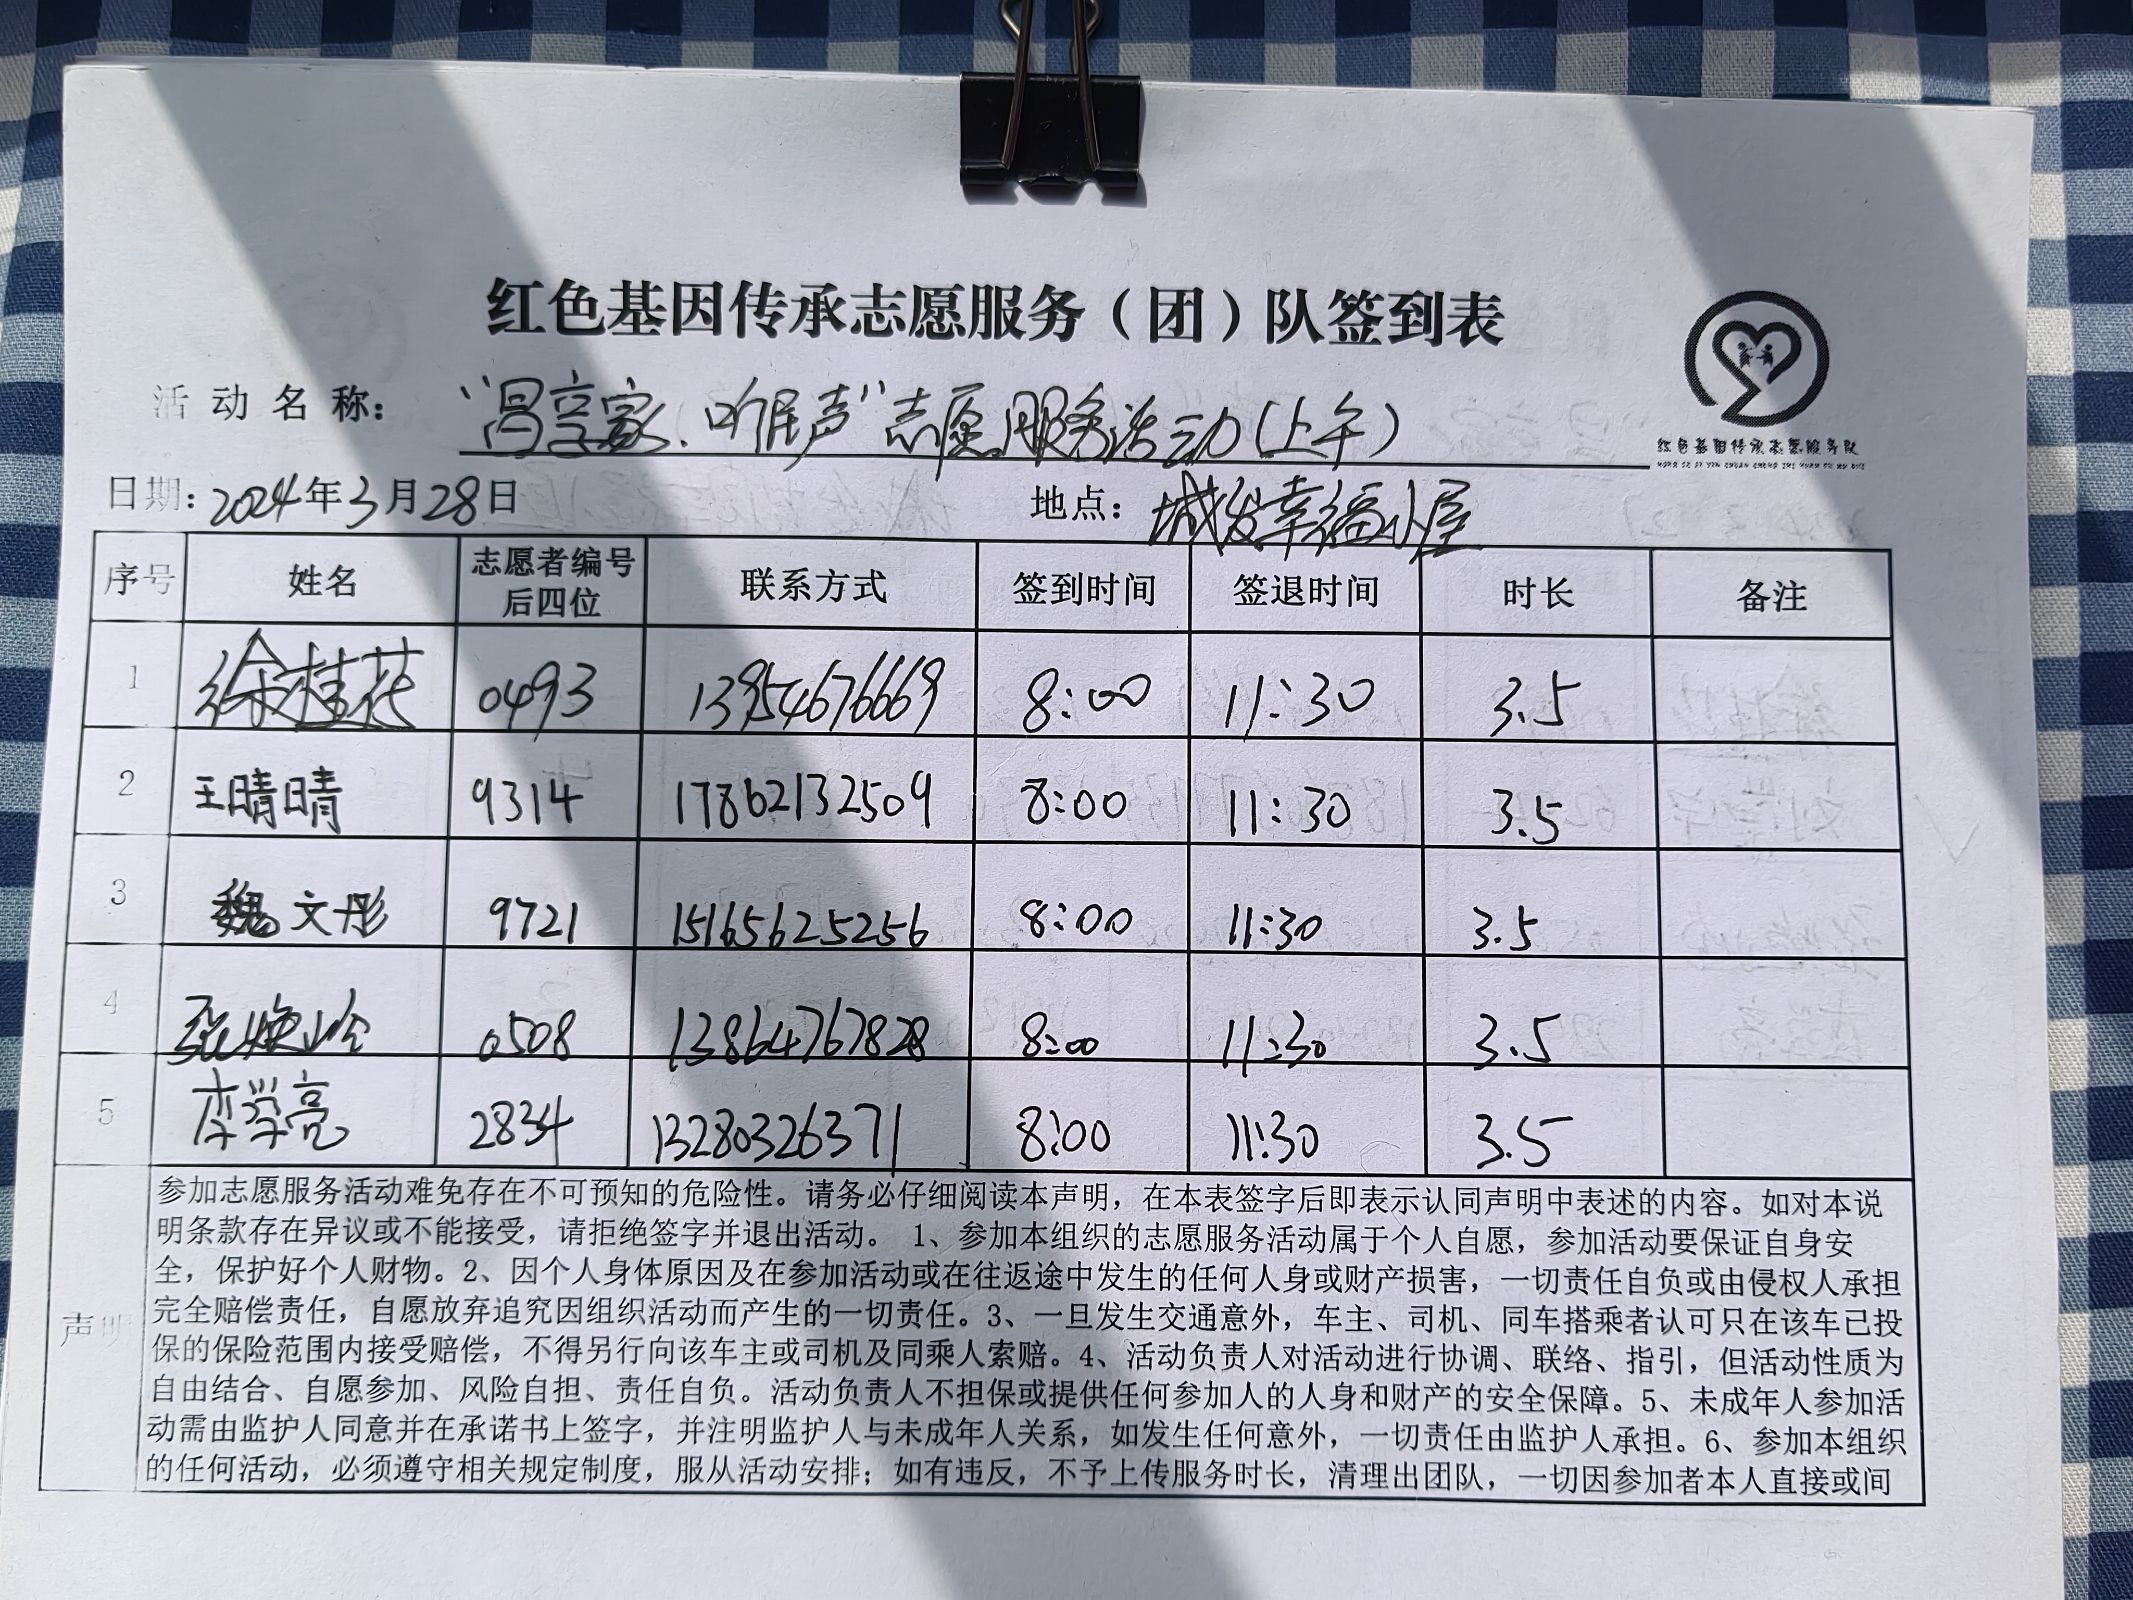 红色基因传承志愿服务（团）队签到表
活动名称：“冒享家、听居声”志愿服务活动(上午)
红色基因传承志愿服务队
日期：2024年3月28日 地点：城发幸福小屋
序号 姓名 志愿者编号后四位 联系方式 签到时间 签退时间 时长 备注
1 徐桂花 0493 13954676669 8:00 11:30 3.5
2 王晴晴 9314 17862132509 8:00 11:30 3.5
3 魏文彤 9721 15165625256 8:00 11:30 3.5
4 张焕岭 0508 13864767828 8:00 11:30 3.5
5 李学亮 2834 13280326371 8:00 11:30 3.5
声明
参加志愿服务活动难免存在不可预知的危险性。请务必仔细阅读本声明，在本表签字后即表示认同声明中表述的内容。如对本说
明条款存在异议或不能接受，请拒绝签字并退出活动。 1、参加本组织的志愿服务活动属于个人自愿，参加活动要保证自身安
全，保护好个人财物。2、因个人身体原因及在参加活动或在往返途中发生的任何人身或财产损害，一切责任自负或由侵权人承担
完全赔偿责任，自愿放弃追究因组织活动而产生的一切责任。3、一旦发生交通意外，车主、司机、同车搭乘者认可只在该车已投
保的保险范围内接受赔偿，不得另行向该车主或司机及同乘人索赔。4、活动负责人对活动进行协调、联络、指引，但活动性质为
自由结合、自愿参加、风险自担、责任自负。活动负责人不担保或提供任何参加人的人身和财产的安全保障。5、未成年人参加活
动需由监护人同意并在承诺书上签字，并注明监护人与未成年人关系，如发生任何意外，一切责任由监护人承担。6、参加本组织
的任何活动，必须遵守相关规定制度，服从活动安排；如有违反，不予上传服务时长，清理出团队，一切因参加者本人直接或间